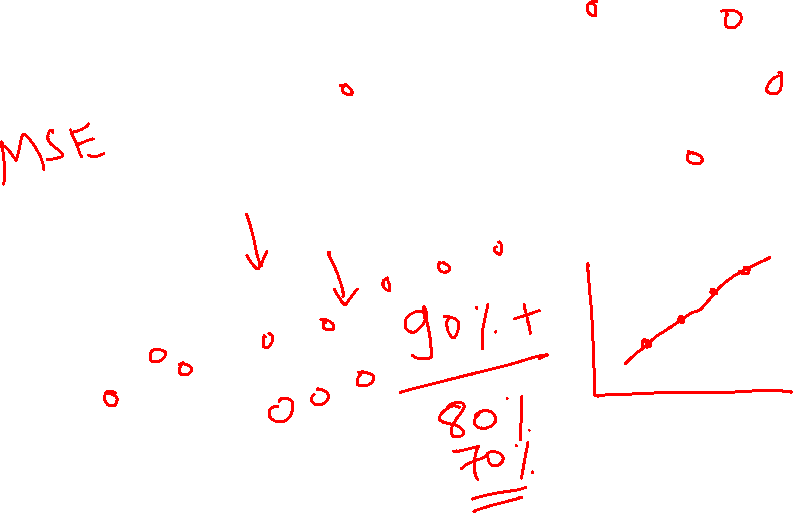 MSE
90% +
80%
70%